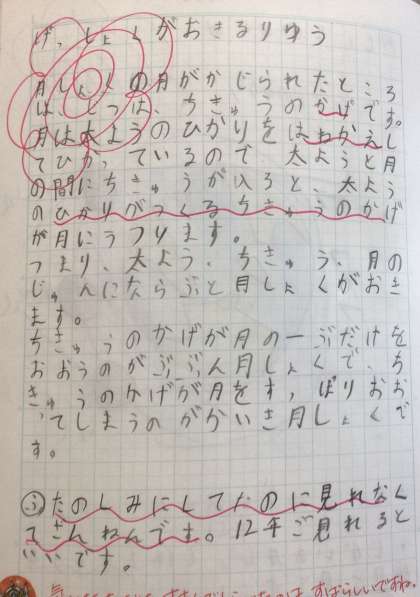 げっしょくがおきるりゆう
月しょくの月がかじられたところ
は、じつは、ちきゅうのかげです。
月は太ようのひかりをはねかえし
てひかっているので、太ようと月
の間にちきゅうが入ると、太よう
のひかりがつくるちきゅうのかげ
が月にうつります。
つまり、太よう、ちきゅう、月の
じゅんにならぶと月しょくがおき
ます。
ちきゅうのかげが月の一ぶだけを
おおうのがぶぶん月しょくで、ち
きゅうのかげが月をすっぽりおお
ってしまうのがかいき月しょくで
す。
たのしみにしてたのに見れなく
てざんねんです。12年ご見れると
いいです。
すばらしいですね。